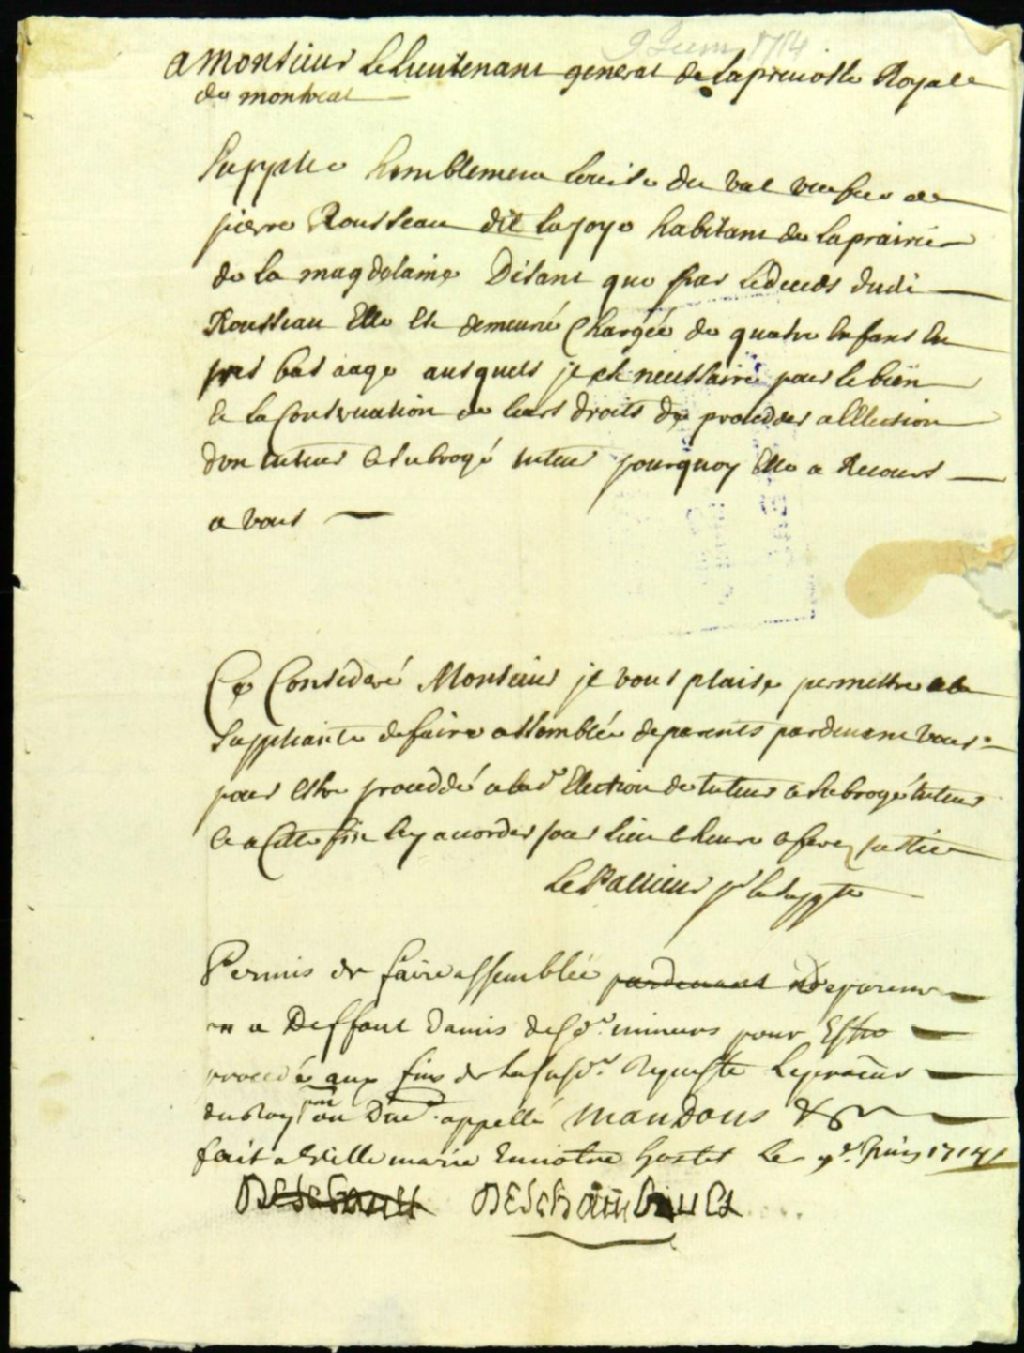 9 Juin 1714
a Monsieur Le Lieutenant general de la prevosté Royale
de montreal
Supplie humblement Louise du val veufue de
pierre Rousseau dit lajoye habitant de laprairie
de la magdelaine Disant que par le deceds dudi
Rousseau Elle Est demeuré Chargée de quatre Enfans En
bas aage ausquels jl est necessaire pour le bien
& la Conseruation de leurs droits de proceder a lElection
dun tuteur & subrogé tuteur pourquoy Elle a Recours
a vous
Ce Consideré Monsieur jl vous plaise permettre a la
Suppliante de faire assemblée de parents pardeuant vous
pour Estre proceddé a lad.e Election de tuteur & subrogé tuteur
& a Cette fin luy accorder jour lieu & heure & ferez justice
Le Pallieur pr la supplte
Permis de faire assemblée pardeuant de parens
et a Deffaut damis desd.s mineurs pour Estre
procedé aux fins de la susd.e Requeste Le procur
du Roy ou Duë appellé Mandons &
fait a Ville marie En nostre hostel Le 9e Juin 1714
Deschambault Deschambault